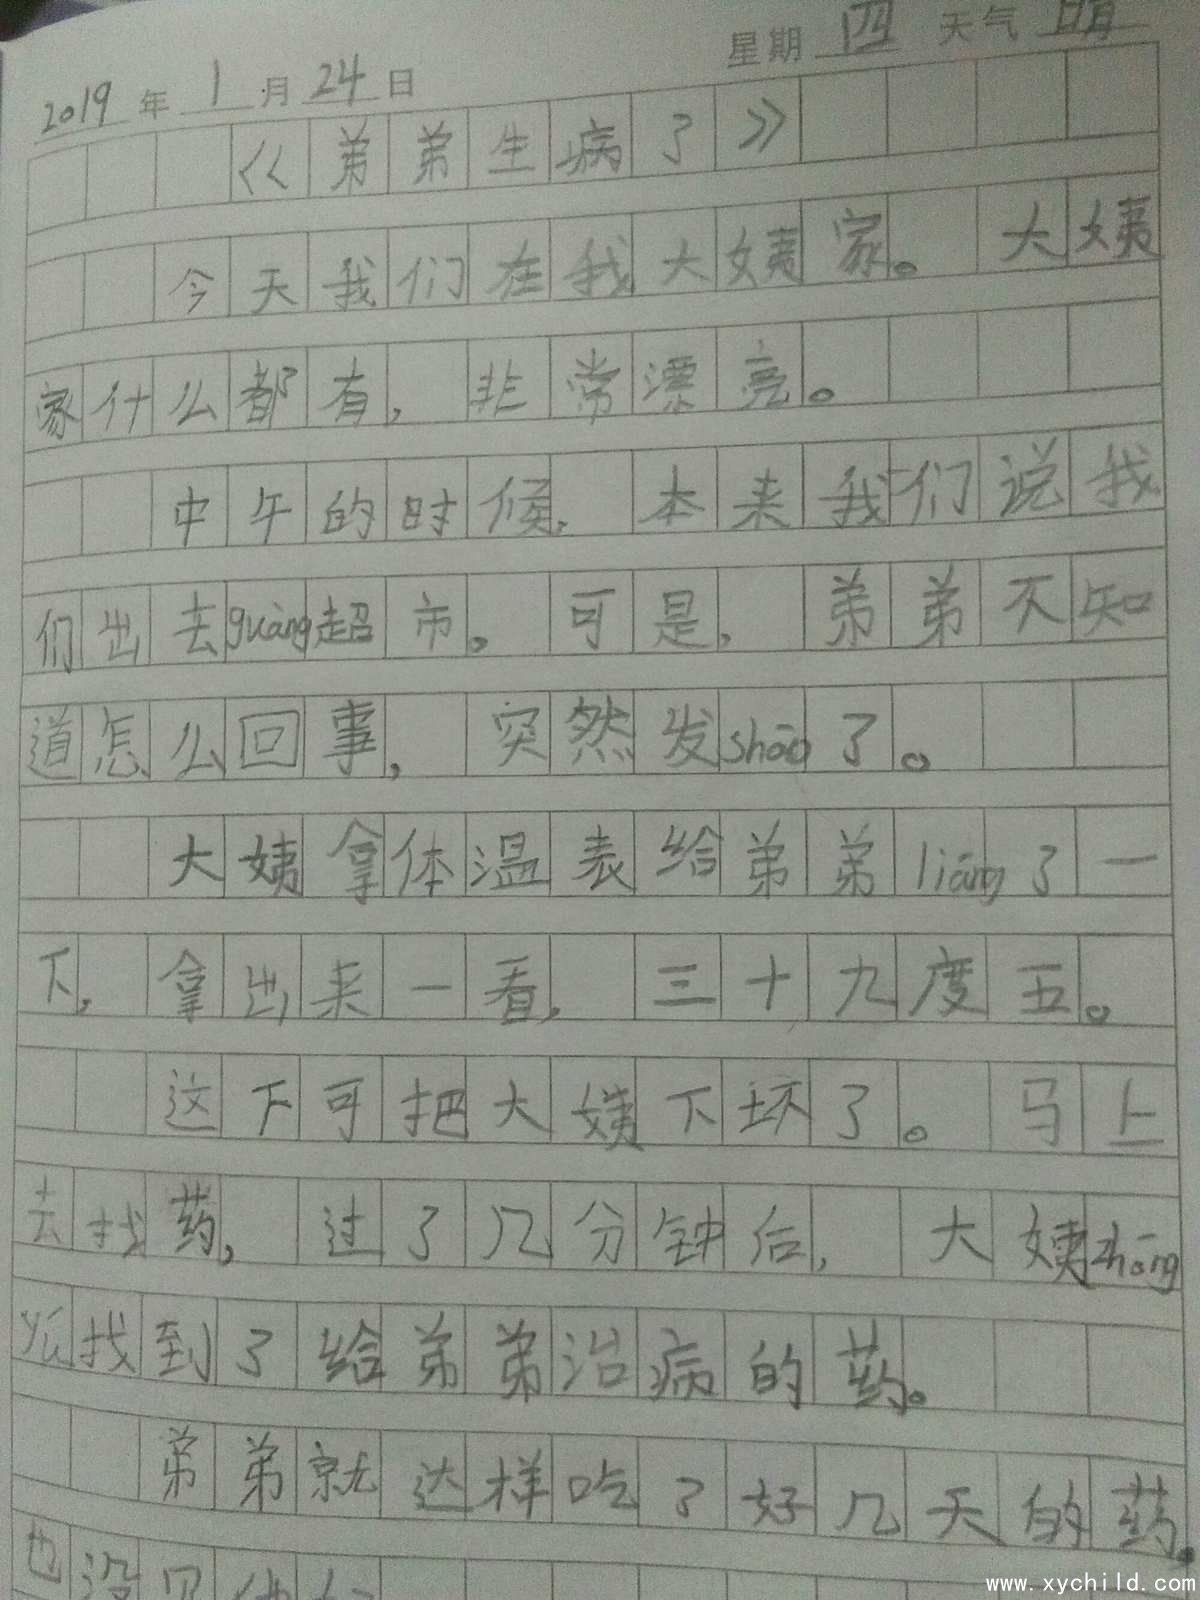 2019年1月24日 星期四 天气晴
《弟弟生病了》
今天我们在我大姨家。大姨
家什么都有，非常漂亮。
中午的时候，本来我们说我
们出去guàng超市。可是，弟弟不知
道怎么回事，突然发shāo了。
大姨拿体温表给弟弟liáng了一
下，拿出来一看，三十九度五。
这下可把大姨下坏了。马上
去找药，过了几分钟后，大姨zhōng
yú找到了给弟弟治病的药。
弟弟就这样吃了好几天的药。
也没见
www.xychild.com